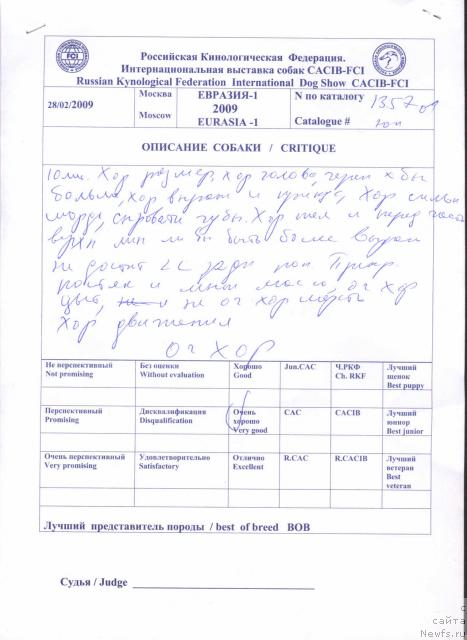 FCI
Российская Кинологическая Федерация.
Интернациональная выставка собак CACIB-FCI
Russian Kynological Federation International Dog Show CACIB-FCI
28/02/2009
Москва
Moscow
ЕВРАЗИЯ-1
2009
EURASIA -1
N по каталогу
Catalogue #
1357
юн
ОПИСАНИЕ СОБАКИ / CRITIQUE
10 мес. Хор размер, хор голова, череп
больше, хор выраж и
морда, губы. Хор шея и перед часть
верх лин бы быть более
не достат зади
костяк и оч хор
цвет, не оч хор шерсть
Хор движения
Оч ХОР
Не перспективный
Not promising
Без оценки
Without evaluation
Хорошо
Good
Jun.CAC
Ч.РКФ
Ch. RKF
Лучший
щенок
Best puppy
Перспективный
Promising
Дисквалификация
Disqualification
Очень
хорошо
Very good
CAC
CACIB
Лучший
юниор
Best junior
Очень перспективный
Very promising
Удовлетворительно
Satisfactory
Отлично
Excellent
R.CAC
R.CACIB
Лучший
ветеран
Best
veteran
Лучший представитель породы / best of breed BOB
Судья / Judge
с
сайта
Newfs.ru